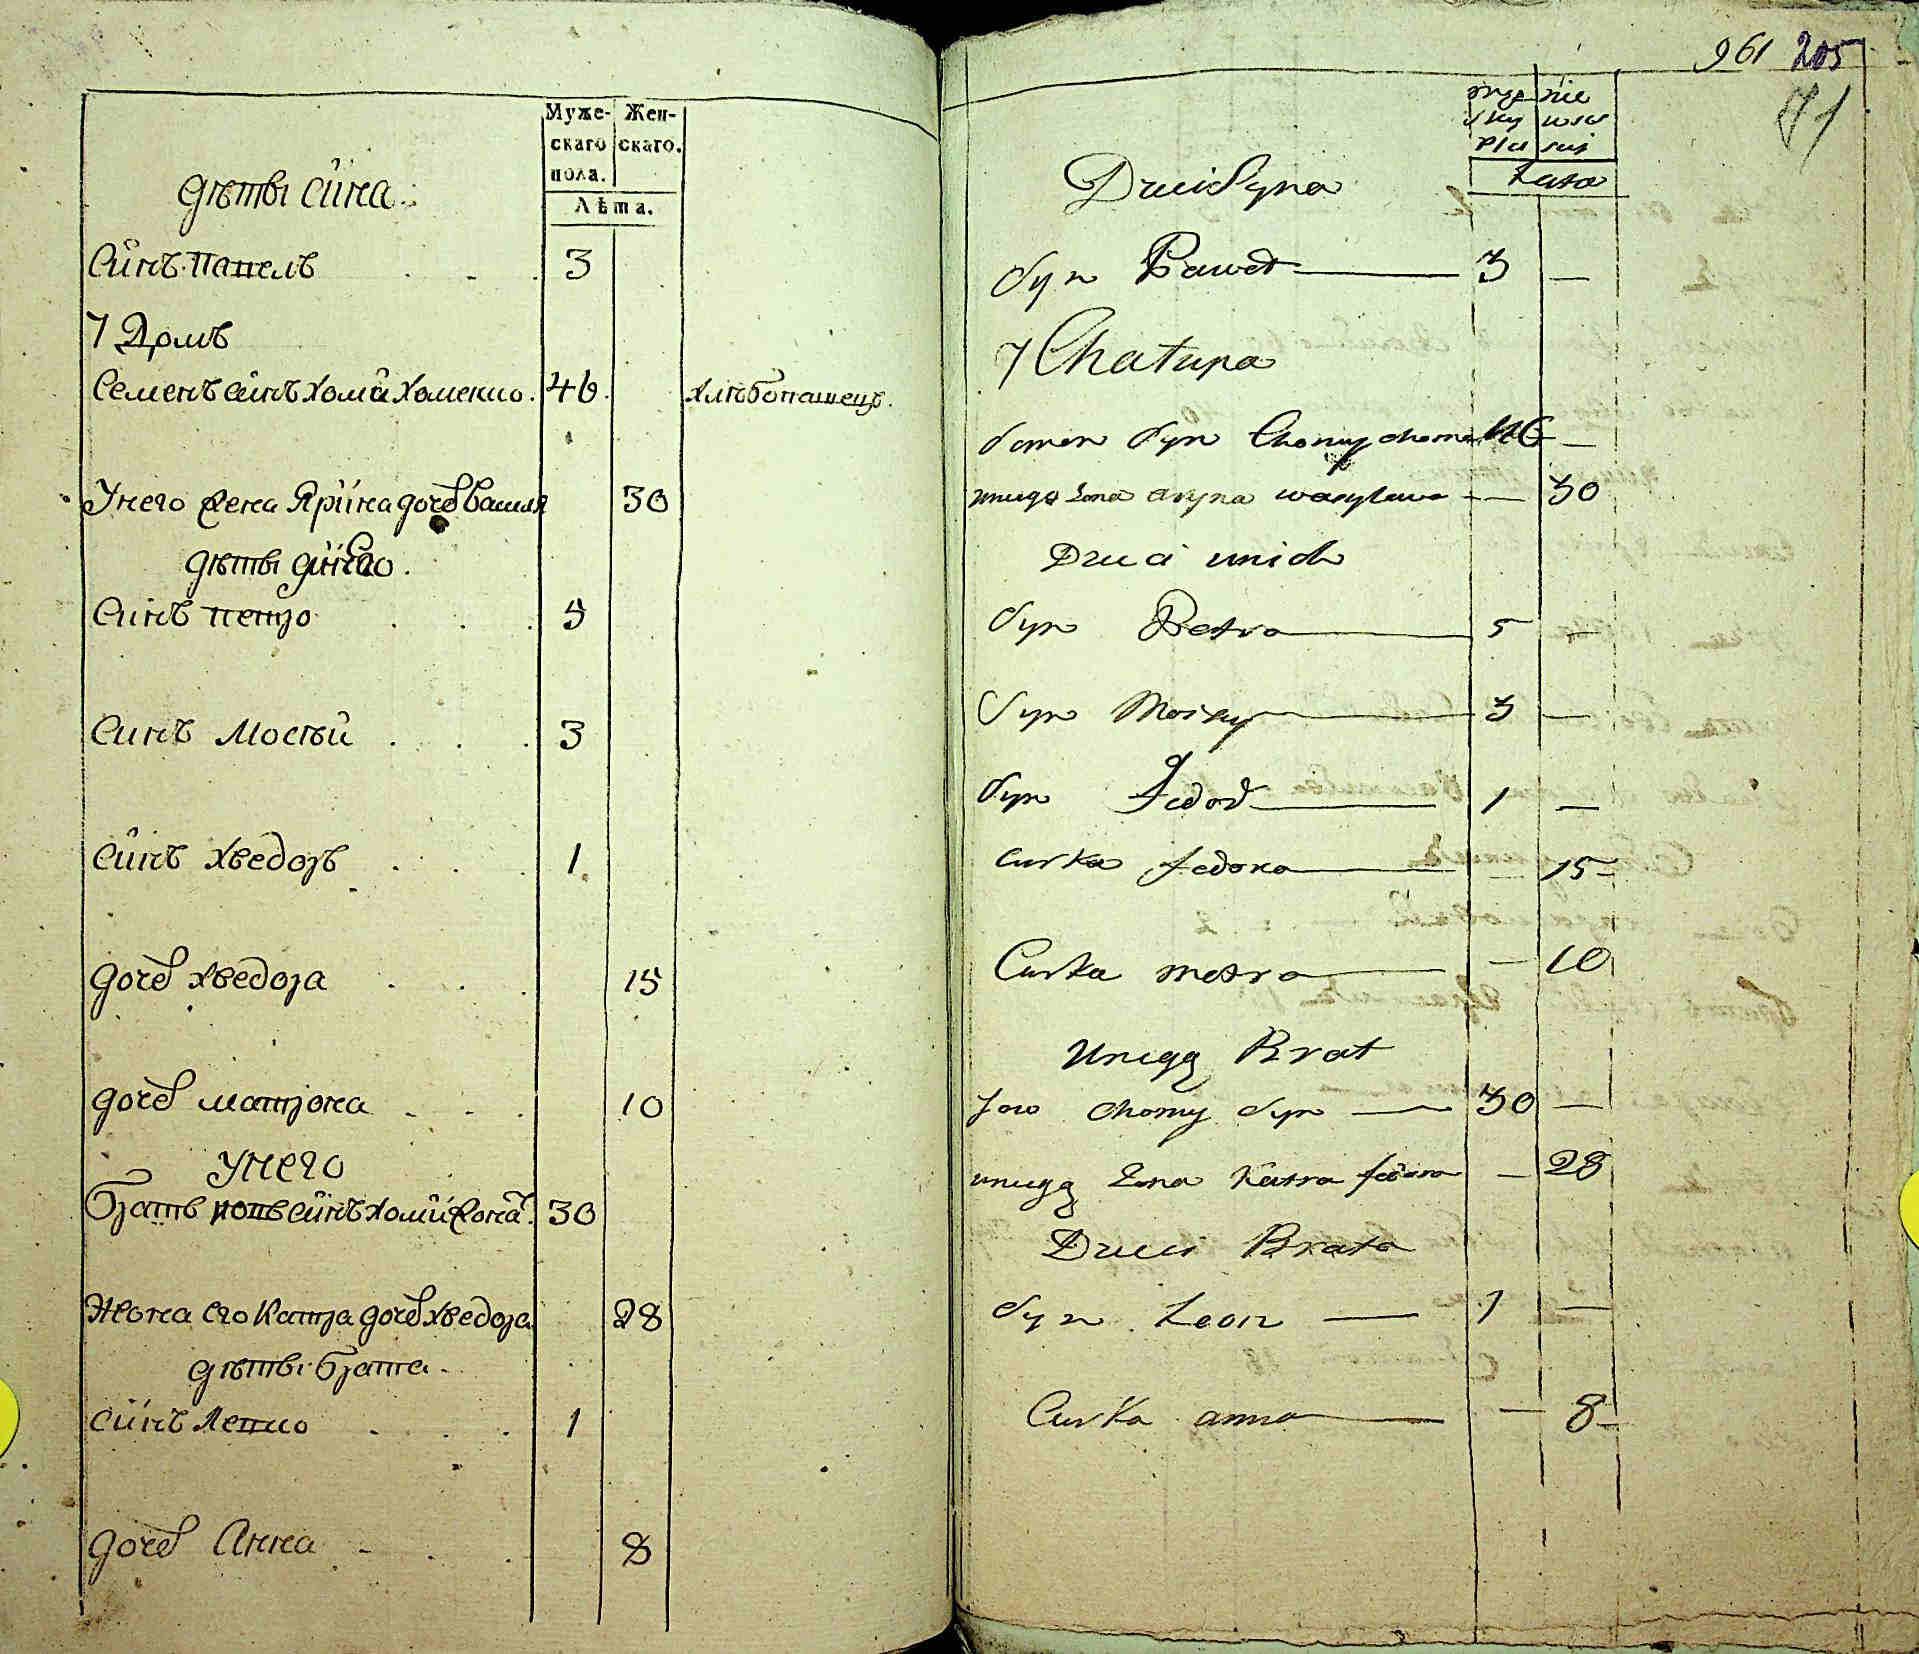 Муже- Жен-
скаго скаго.
пола.
Лѣта.
дѣтьі сіна
Сінъ Павелъ . . . 3
7 Домъ
Семенъ сінъ Хоми Хоменко. 46. хлѣбопашецъ.
Унего жена Яріна дочь Василя 30
дѣтьі
Синъ Петро . . . 5
Синъ Мосѣй . . . 3
Сінъ Хведоръ . . . 1
дочь Хведора . . . 15
дочь Матрона . . . 10
Унего
братъ сінъ Хоми 30
Жона его Катра дочь Хведора 28
дѣтьі брата
Сінъ Левко . . . 1
дочь Анна . . . 8
961 205
71
męskiey niewieściey
płci
Lata
Dzieci Syna
Syn Paweł 3 —
7 Chatupa
Semen Syn Chomy Chomenko 46 —
uniego Żona Aryna Wasylowa — 30
Dzieci unich
Syn Petro 5 —
Syn Mosiey 3 —
Syn Fedor 1 —
Curka Fedora — 15
Curka Motra — 10
Uniego Brat
Jow Chomy Syn 30 —
uniego Żona Katra Fedora — 28
Dzieci Brata
Syn Leon 1 —
Curka Anna — 8